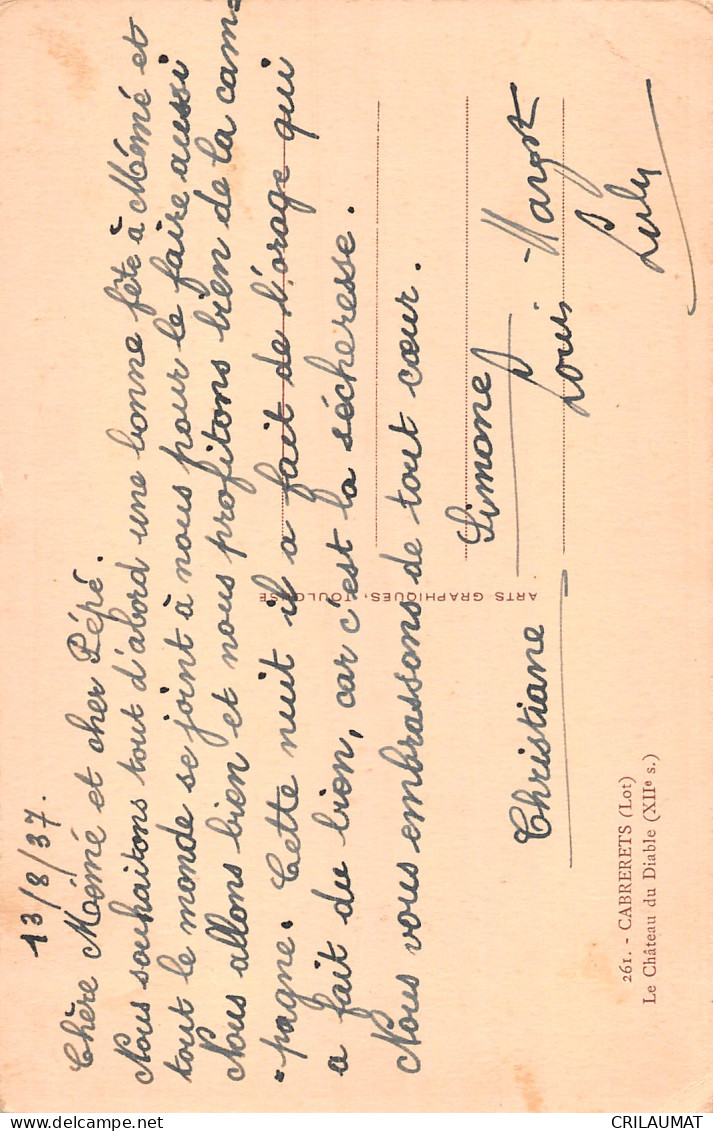 13/8/37.
Chère Mémé et cher Pépé.
Nous souhaitons tout d'abord une bonne fête à Mémé et
tout le monde se joint à nous pour le faire aussi
Nous allons bien et nous profitons bien de la cam-
-pagne. Cette nuit il a fait de l'orage qui
a fait du bien, car c'est la sécheresse.
Nous vous embrassons de tout cœur.
Christiane Simone Louis Margot
Luly
ARTS GRAPHIQUES, TOULOUSE
261. - CABRERETS (Lot)
Le Château du Diable (XIIe s.)
CRILAUMAT